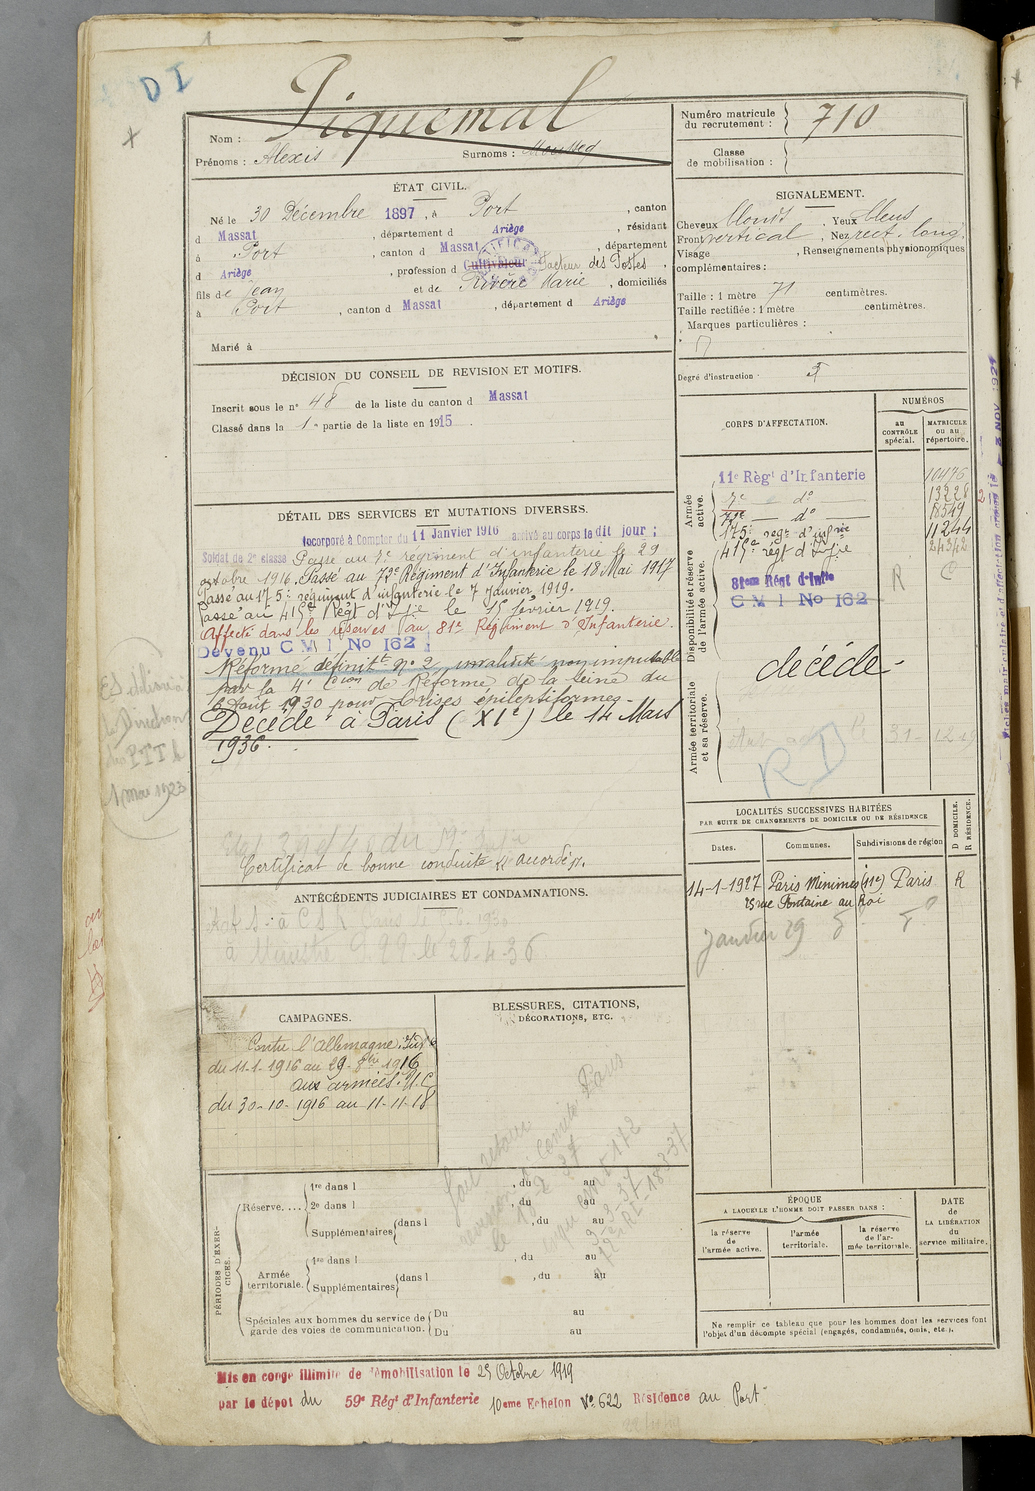 DI
Piquemal
Nom :
Prénoms : Alexis Surnoms :
ÉTAT CIVIL.
Né le 30 Décembre 1897, à Port, canton
d Massat, département d Ariège, résidant
à Port, canton d Massat, département
d Ariège, profession d Cultivateur Facteur des Postes,
fils de Jean et de Rivère Marie, domiciliés
à Port, canton d Massat, département d Ariège
Marié à
DÉCISION DU CONSEIL DE REVISION ET MOTIFS.
Inscrit sous le n° 48 de la liste du canton d Massat
Classé dans la 1e partie de la liste en 1915.
DÉTAIL DES SERVICES ET MUTATIONS DIVERSES.
Incorporé à Compter du 11 Janvier 1916 arrivé au corps le dit jour ;
Soldat de 2e classe Passé au 7e régiment d'infanterie le 29
octobre 1916. Passé au 72e Régiment d'Infanterie le 18 Mai 1917
Passé au 175e régiment d'infanterie le 7 Janvier 1919.
Passé au 415e Régt d'Inf.ie le 15 février 1919.
Affecté dans les réserves au 81e Régiment d'Infanterie.
Devenu C M I No 162
Réformé définitt n° 2, invalidité non imputable
par la 4e Cion de Réforme de la Seine du
6 Aout 1930 pour Crises épileptiformes.
Décédé à Paris (XIe) le 14 Mars
1936.
Certificat de bonne conduite "accordé".
ANTÉCÉDENTS JUDICIAIRES ET CONDAMNATIONS.
à Ministre P 99 le 28-4-36
CAMPAGNES.
Contre l'Allemagne
du 11-1-1916 au 29-8bre 1916
aux armées
du 30-10-1916 au 11-11-18
BLESSURES, CITATIONS,
DÉCORATIONS, ETC.
PÉRIODES D'EXERCICES.
Réserve.... 1re dans l , du au
2e dans l , du au
Supplémentaires dans l , du au
Armée territoriale. 1re dans l , du au
Supplémentaires dans l , du au
Spéciales aux hommes du service de Du au
garde des voies de communication. Du au
Mis en congé illimité de démobilisation le 25 Octobre 1919
par le dépôt du 59e Régt d'Infanterie 10eme Echelon No 622 Résidence au Port
Numéro matricule
du recrutement : 710
Classe
de mobilisation :
SIGNALEMENT.
Cheveux blonds Yeux bleus
Front vertical, Nez rect. long,
Visage , Renseignements physionomiques
complémentaires :
Taille : 1 mètre 71 centimètres.
Taille rectifiée : 1 mètre centimètres.
Marques particulières :
Degré d'instruction : 3
CORPS D'AFFECTATION.
NUMÉROS
au
CONTRÔLE
spécial.
MATRICULE
ou au
répertoire.
Armée
active.
11e Régt d'Infanterie
7e do
72e do
175e regt d'infrie
415e régt d'Inf.ie
11244
Disponibilité et réserve
de l'armée active.
81eme Régt d'Infie R
C M I No 162
décédé
Armée territoriale
et sa réserve.
RD
LOCALITÉS SUCCESSIVES HABITÉES
PAR SUITE DE CHANGEMENTS DE DOMICILE OU DE RÉSIDENCE
D DOMICILE.
R RÉSIDENCE.
Dates. Communes. Subdivisions de région
14-1-1927 Paris Minimes (11e) Paris R
25 rue Fontaine au Roi
Janvier 29
ÉPOQUE
A LAQUELLE L'HOMME DOIT PASSER DANS :
la réserve
de
l'armée active.
l'armée
territoriale.
la réserve
de l'armée territoriale.
DATE
de
LA LIBÉRATION
du
service militaire.
Ne remplir ce tableau que pour les hommes dont les services font
l'objet d'un décompte spécial (engagés, condamnés, omis, etc.).